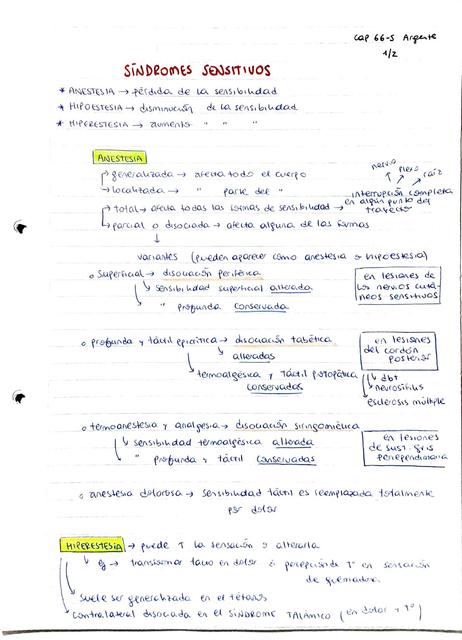 Cap 66-5 Argente
1/2
SÍNDROMES SENSITIVOS
* ANESTESIA → pérdida de la sensibilidad
* HIPOESTESIA → disminución de la sensibilidad
* HIPERESTESIA → aumento " " "
ANESTESIA
generalizada → afecta todo el cuerpo
localizada → " parte del "
nervio
plexo
raíz
total → afecta todas las formas de sensibilidad → interrupción completa
en algún punto del
trayecto
parcial o disociada → afecta alguna de las formas
↓
variantes (pueden aparecer como anestesia o hipoestesia)
o superficial → disociación periférica
↳ sensibilidad superficial alterada
↳ " profunda conservada
en lesiones de
los nervios cutá-
neos sensitivos
o profunda y táctil epicrítica → disociación tabética
↳ alteradas
↳ termoalgésica y táctil protopática
conservadas
en lesiones
del cordón
posterior
↳ dbt
↳ neurosífilis
↳ esclerosis múltiple
o termoanestesia y analgesia → disociación siringomiélica
↳ sensibilidad termoalgésica alterada
↳ " profunda y táctil conservadas
en lesiones
de sust. gris
periependimaria
o anestesia dolorosa → sensibilidad táctil es reemplazada totalmente
por dolor
HIPERESTESIA → puede ↑ la sensación o alterarla
↳ ej → transformar tacto en dolor o percepción T° en sensación
de quemadura
↳ suele ser generalizada en el tétanos
↳ contralateral disociada en el SÍNDROME TALÁMICO (en dolor y T°)